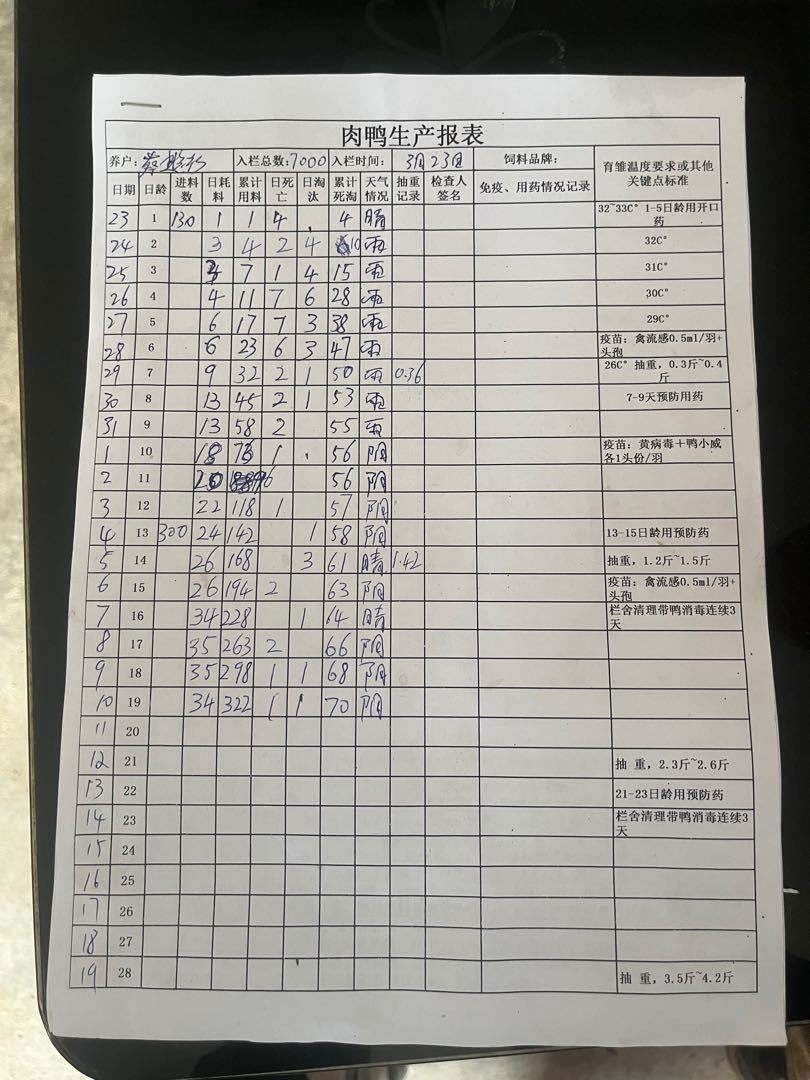 肉鸭生产报表
养户: 入栏总数:7000 入栏时间: 3月23日 饲料品牌: 育雏温度要求或其他关键点标准
日期 日龄 进料数 日耗料 累计用料 日死亡 日淘汰 累计死淘 天气情况 抽重记录 检查人签名 免疫、用药情况记录
23 1 130 1 1 4 4 晴 32~33C° 1-5日龄用开口药
24 2 3 4 2 4 10 雨 32C°
25 3 3 7 1 4 15 雨 31C°
26 4 4 11 7 6 28 雨 30C°
27 5 6 17 7 3 38 雨 29C°
28 6 6 23 6 3 47 雨 疫苗：禽流感0.5ml/羽+头孢
29 7 9 32 2 1 50 雨 0.36 26C° 抽重，0.3斤~0.4斤
30 8 13 45 2 1 53 雨 7-9天预防用药
31 9 13 58 2 55 雨
1 10 18 76 1 56 阴 疫苗：黄病毒+鸭小威各1头份/羽
2 11 20 96 56 阴
3 12 22 118 1 57 阴
4 13 300 24 142 1 58 阴 13-15日龄用预防药
5 14 26 168 3 61 晴 1.42 抽重，1.2斤~1.5斤
6 15 26 194 2 63 阴 疫苗：禽流感0.5ml/羽+头孢
7 16 34 228 1 64 晴 栏舍清理带鸭消毒连续3天
8 17 35 263 2 66 阴
9 18 35 298 1 1 68 阴
10 19 34 322 1 1 70 阴
11 20
12 21 抽 重，2.3斤~2.6斤
13 22 21-23日龄用预防药
14 23 栏舍清理带鸭消毒连续3天
15 24
16 25
17 26
18 27
19 28 抽 重，3.5斤~4.2斤